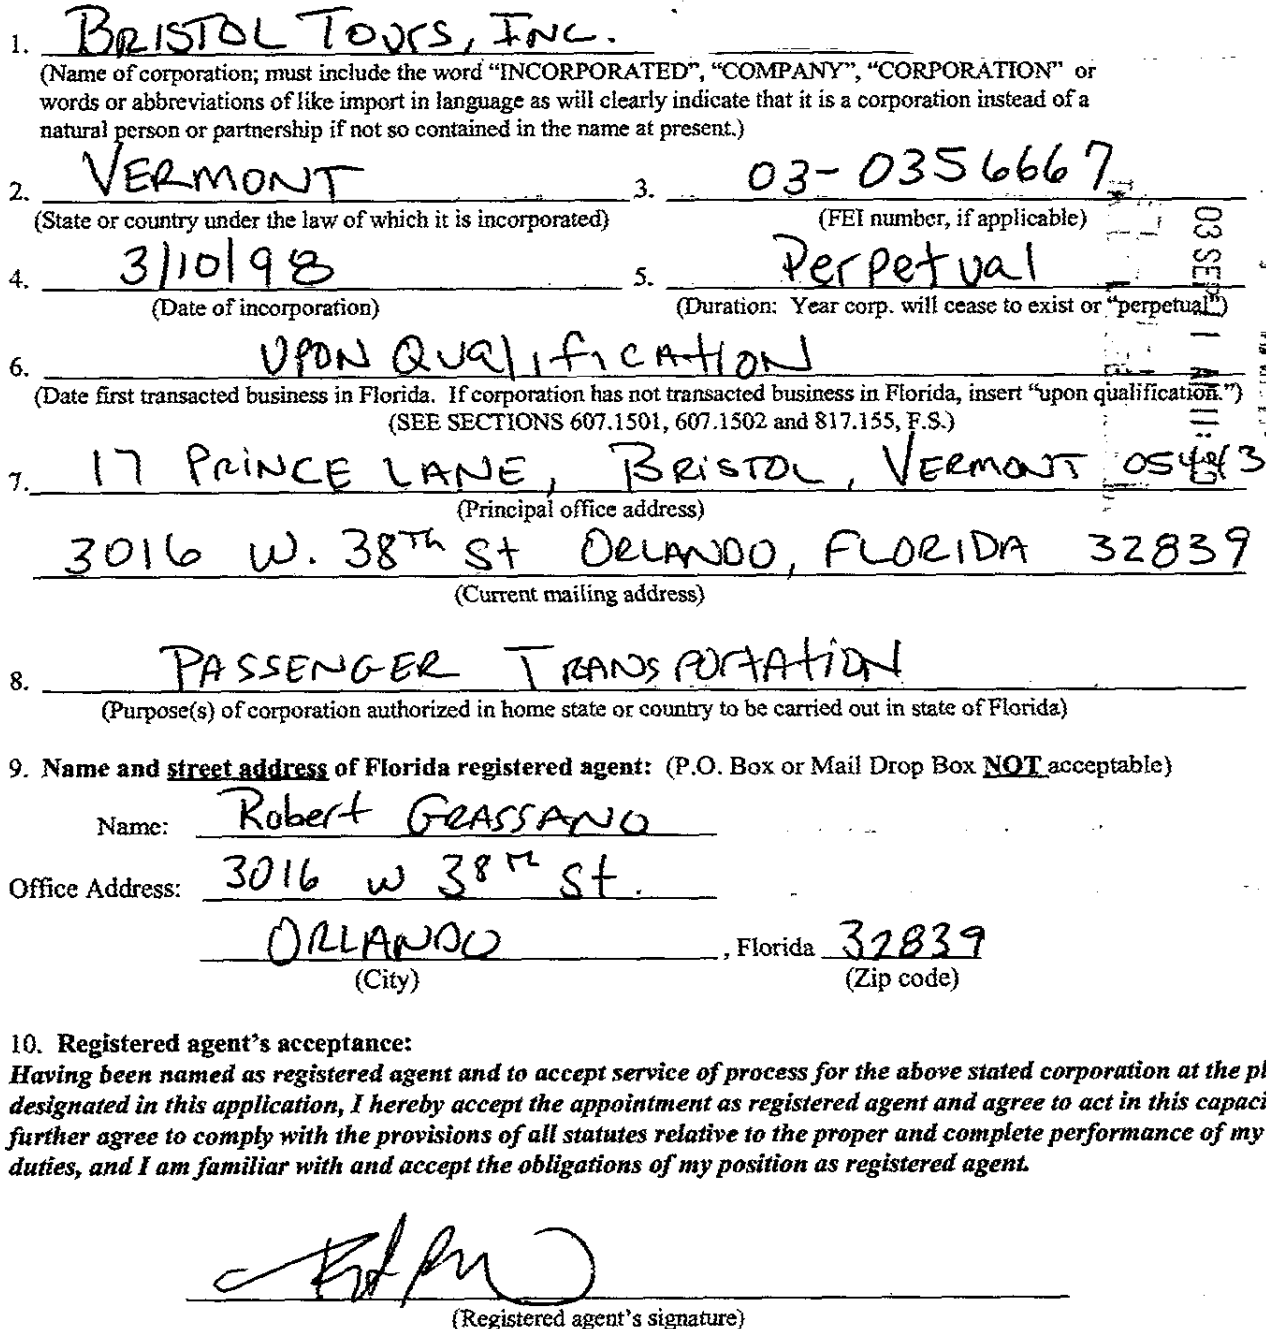 1. BRISTOL TOURS, INC.
(Name of corporation; must include the word “INCORPORATED”, “COMPANY”, “CORPORATION” or
words or abbreviations of like import in language as will clearly indicate that it is a corporation instead of a
natural person or partnership if not so contained in the name at present.)
2. VERMONT 3. 03-0356667
(State or country under the law of which it is incorporated) (FEI number, if applicable)
4. 3/10/98 5. Perpetual
(Date of incorporation) (Duration: Year corp. will cease to exist or “perpetual”)
6. UPON QUALIFICATION
(Date first transacted business in Florida. If corporation has not transacted business in Florida, insert “upon qualification.”)
(SEE SECTIONS 607.1501, 607.1502 and 817.155, F.S.)
7. 17 PRINCE LANE, BRISTOL, VERMONT 05443
(Principal office address)
3016 W. 38Th St ORLANDO, FLORIDA 32839
(Current mailing address)
8. PASSENGER TRANSPORTATION
(Purpose(s) of corporation authorized in home state or country to be carried out in state of Florida)
9. Name and street address of Florida registered agent: (P.O. Box or Mail Drop Box NOT acceptable)
Name: Robert GRASSANO
Office Address: 3016 W 38TH St.
ORLANDO, Florida 32839
(City) (Zip code)
10. Registered agent’s acceptance:
Having been named as registered agent and to accept service of process for the above stated corporation at the pl
designated in this application, I hereby accept the appointment as registered agent and agree to act in this capaci
further agree to comply with the provisions of all statutes relative to the proper and complete performance of my
duties, and I am familiar with and accept the obligations of my position as registered agent.
(Registered agent’s signature)
03 SEP